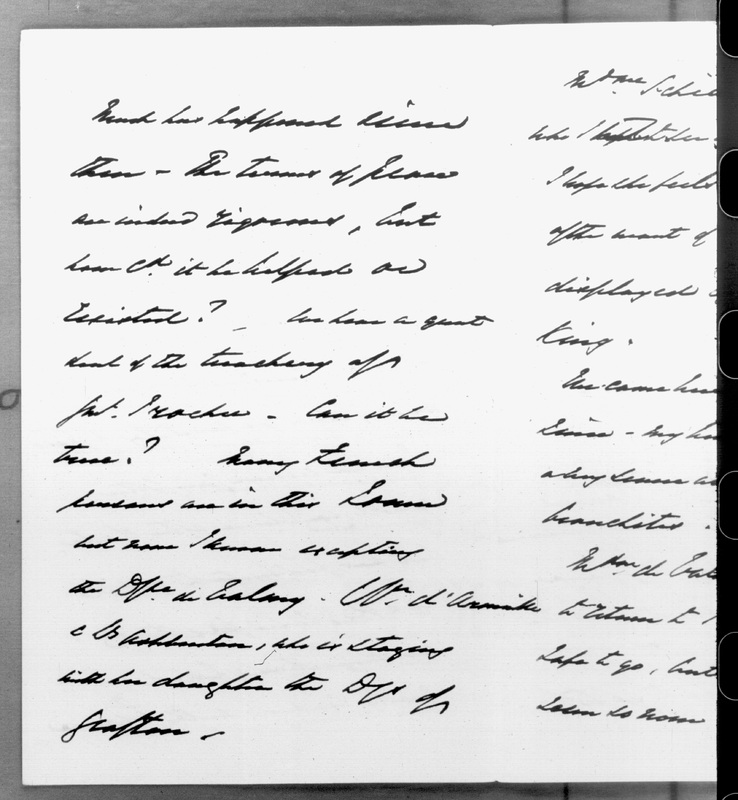 Much has happened since
then - The terms of peace
are indeed rigorous, but
how cd. it be helped or
resisted? - We hear a great
deal of the treachery of
Gnl. Trochu - Can it be
true? Many French
persons are in this Town
but none I know excepting
the Dsse de
& Ly Ashburton, who is staying
with her daughter the Dss of
Grafton -
Mdme
who I
I hope she feels
after the want of
displayed
King.
We came here
since - my
a very severe
bronchitis.
Mdme de
to return to
safe to go, but
seem so now